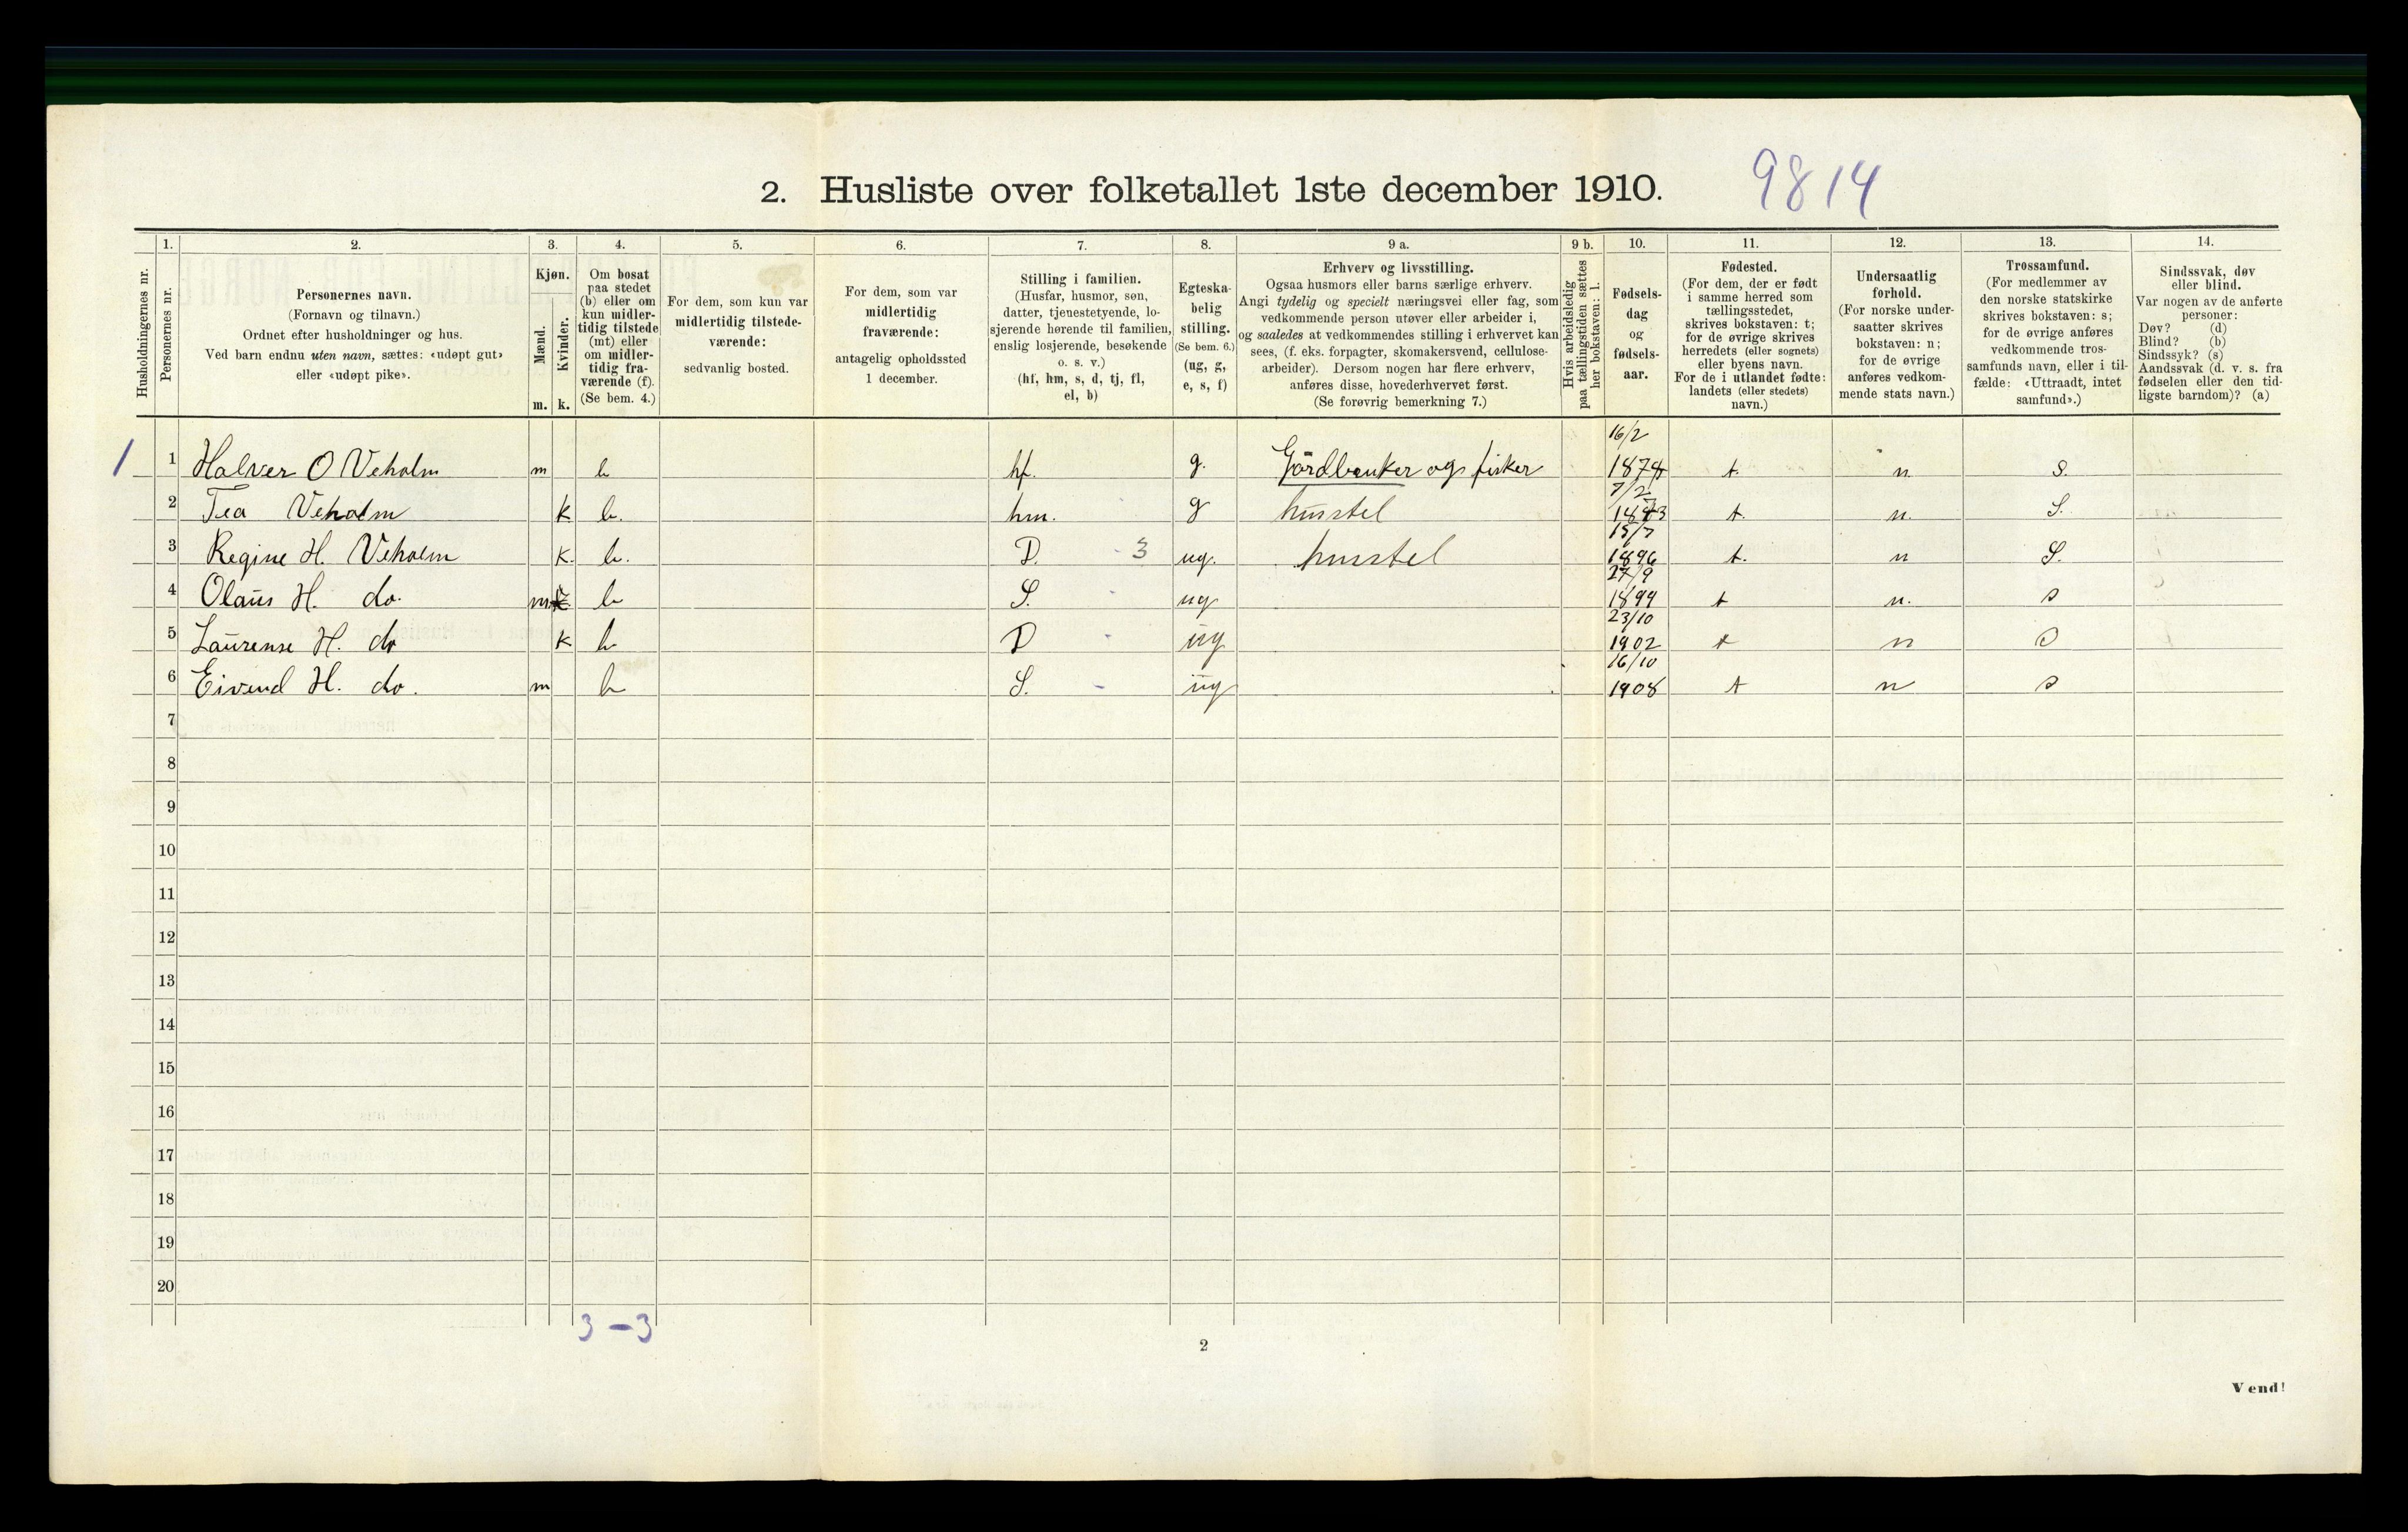 2. Husliste over folketallet 1ste december 1910. 9814
1. 2. 3. 4. 5. 6. 7. 8. 9 a. 9 b. 10. 11. 12. 13. 14.
Husholdningernes nr.
Personernes nr.
Personernes navn.
(Fornavn og tilnavn.)
Ordnet efter husholdninger og hus.
Ved barn endnu uten navn, sættes: «udøpt gut»
eller «udøpt pike».
Kjøn.
Mænd.
Kvinder.
m. k.
Om bosat
paa stedet
(b) eller om
kun midler-
tidig tilstede
(mt) eller
om midler-
tidig fra-
værende (f).
(Se bem. 4.)
For dem, som kun var
midlertidig tilstede-
værende:
sedvanlig bosted.
For dem, som var
midlertidig
fraværende:
antagelig opholdssted
1 december.
Stilling i familien.
(Husfar, husmor, søn,
datter, tjenestetyende, lo-
sjerende hørende til familien,
enslig losjerende, besøkende
o. s. v.)
(hf, hm, s, d, tj, fl,
el, b)
Egteska-
belig
stilling.
(Se bem. 6.)
(ug, g,
e, s, f)
Erhverv og livsstilling.
Ogsaa husmors eller barns særlige erhverv.
Angi tydelig og specielt næringsvei eller fag, som
vedkommende person utøver eller arbeider i,
og saaledes at vedkommendes stilling i erhvervet kan
sees, (f. eks. forpagter, skomakersvend, cellulose-
arbeider). Dersom nogen har flere erhverv,
anføres disse, hovederhvervet først.
(Se forøvrig bemerkning 7.)
Hvis arbeidsledig
paa tællingstiden sættes
her bokstaven: l.
Fødsels-
dag
og
fødsels-
aar.
Fødested.
(For dem, der er født
i samme herred som
tællingsstedet,
skrives bokstaven: t;
for de øvrige skrives
herredets (eller sognets)
eller byens navn.
For de i utlandet fødte:
landets (eller stedets)
navn.)
Undersaatlig
forhold.
(For norske under-
saatter skrives
bokstaven: n;
for de øvrige
anføres vedkom-
mende stats navn.)
Trossamfund.
(For medlemmer av
den norske statskirke
skrives bokstaven: s;
for de øvrige anføres
vedkommende tros-
samfunds navn, eller i til-
fælde: «Uttraadt, intet
samfund».)
Sindssvak, døv
eller blind.
Var nogen av de anførte
personer:
Døv? (d)
Blind? (b)
Sindssyk? (s)
Aandssvak (d. v. s. fra
fødselen eller den tid-
ligste barndom)? (a)
16/2
1 1 Halver O Veholm m b hf. g. Gårdbruker og fisker 1874 t. n. s.
7/2
2 Tea Veholm k b. hm. g hustel 1873 t. n. S.
15/7
3 Regine H. Veholm k. b. D. 3 ug. hustel 1896 t. n S.
27/9
4 Olaus H. do. m b S. ug 1899 t n. s
23/10
5 Laurense H. do k b D ug 1902 t n s
16/10
6 Eivend H. do. m b S. ug 1908 t n s
7
8
9
10
11
12
13
14
15
16
17
18
19
20
3 – 3
2
Vend!